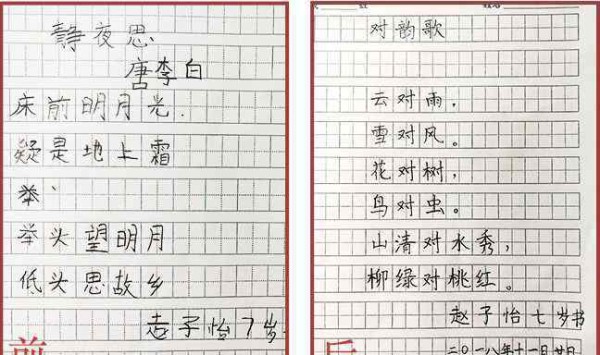 静夜思
唐李白
床前明月光.
疑是地上霜
举、
举头望明月
低头思故乡
赵子怡7岁
前
对韵歌
云对雨,
雪对风。
花对树,
鸟对虫。
山清对水秀,
柳绿对桃红。
赵子怡七岁书
二〇一八年十一月廿日
后